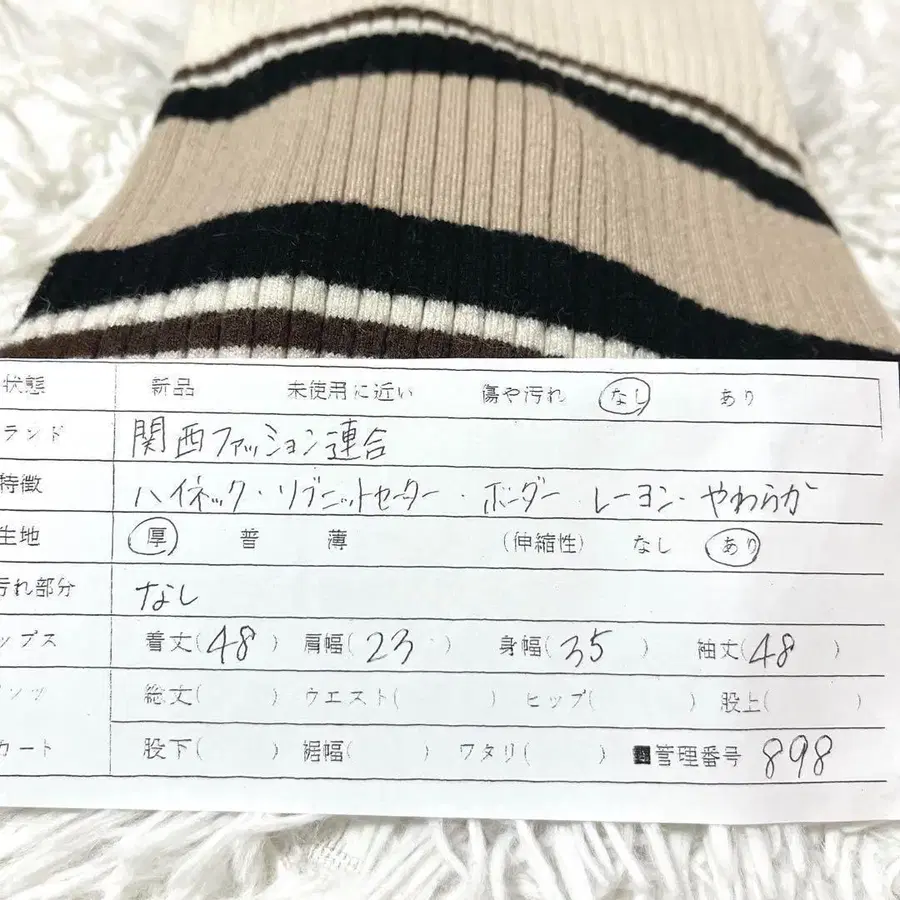 状態 新品 未使用に近い 傷や汚れ なし あり
ランド 関西ファッション連合
特徴 ハイネック・リブニットセーター・ボーダー・レーヨン・やわらか
生地 厚 普 薄 (伸縮性) なし あり
汚れ部分 なし
ップス 着丈(48) 肩幅(23) 身幅(35) 袖丈(48)
ンツ 総丈( ) ウエスト( ) ヒップ( ) 股上( )
カート 股下( ) 裾幅( ) ワタリ( ) ■管理番号 898